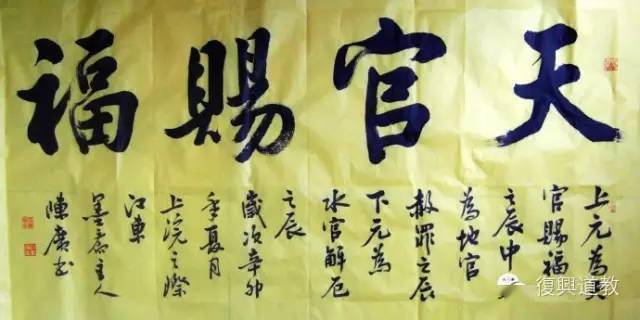 天官賜福
上元為天
官賜福
之辰中
為地官
赦罪之辰
下元為
水官解厄
之辰
歲次辛卯
季夏月
上浣之際
江東
墨斋主人
陳廣书
復興道教